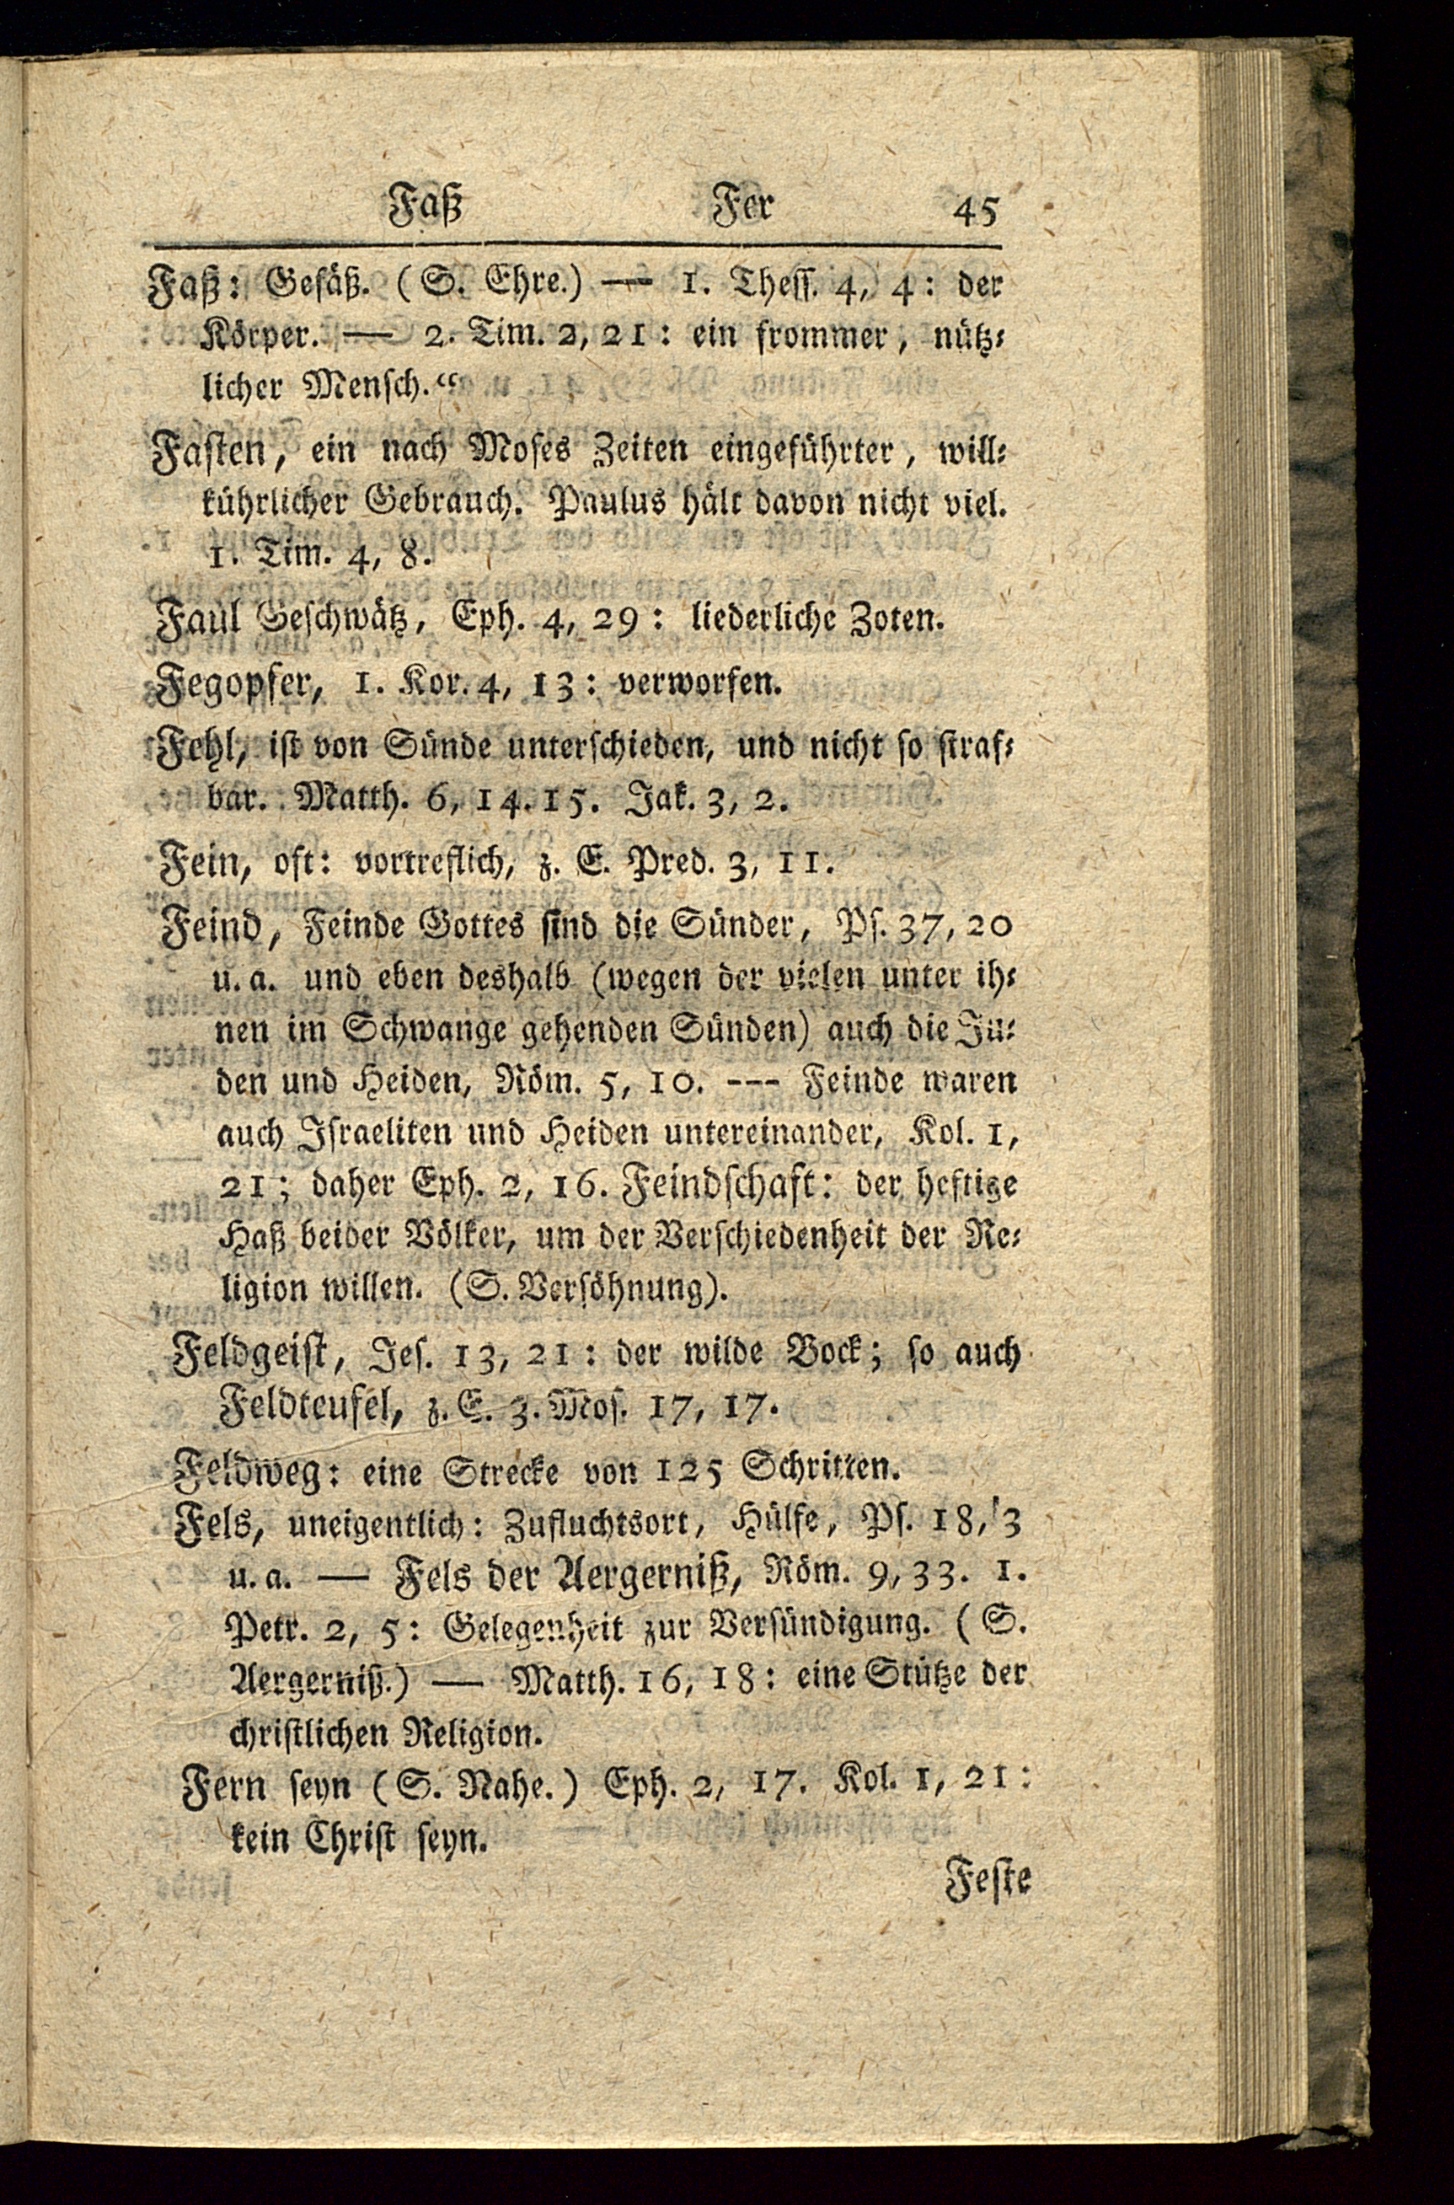 Faß Fer 45
Faß: Gefäß. (S. Ehre.) — 1. Thess. 4, 4: der
Körper. — 2. Tim. 2, 21: ein frommer, nütz⸗
licher Mensch.“
Fasten, ein nach Moses Zeiten eingeführter, will⸗
kührlicher Gebrauch. Paulus hält davon nicht viel.
1. Tim. 4, 8.
Faul Geschwätz, Eph. 4, 29: liederliche Zoten.
Fegopfer, 1. Kor. 4, 13: verworfen.
Fehl, ist von Sünde unterschieden, und nicht so straf⸗
bar. Matth. 6, 14. 15. Jak. 3, 2.
Fein, oft: vortreflich, z. E. Pred. 3, 11.
Feind, Feinde Gottes sind die Sünder, Ps. 37, 20
u. a. und eben deshalb (wegen der vielen unter ih⸗
nen im Schwange gehenden Sünden) auch die Ju⸗
den und Heiden, Röm. 5, 10. --- Feinde waren
auch Israeliten und Heiden untereinander, Kol. 1,
21; daher Eph. 2, 16. Feindschaft: der heftige
Haß beider Völker, um der Verschiedenheit der Re⸗
ligion willen. (S. Versöhnung).
Feldgeist, Jes. 13, 21: der wilde Bock; so auch
Feldteufel, z. E. 3. Mos. 17, 17.
Feldweg: eine Strecke von 125 Schritten.
Fels, uneigentlich: Zufluchtsort, Hülfe, Ps. 18, 3
u. a. — Fels der Aergerniß, Röm. 9, 33. 1.
Petr. 2, 5: Gelegenheit zur Versündigung. (S.
Aergerniß.) — Matth. 16, 18: eine Stütze der
christlichen Religion.
Fern seyn (S. Nahe.) Eph. 2, 17. Kol. 1, 21:
kein Christ seyn.
Feste